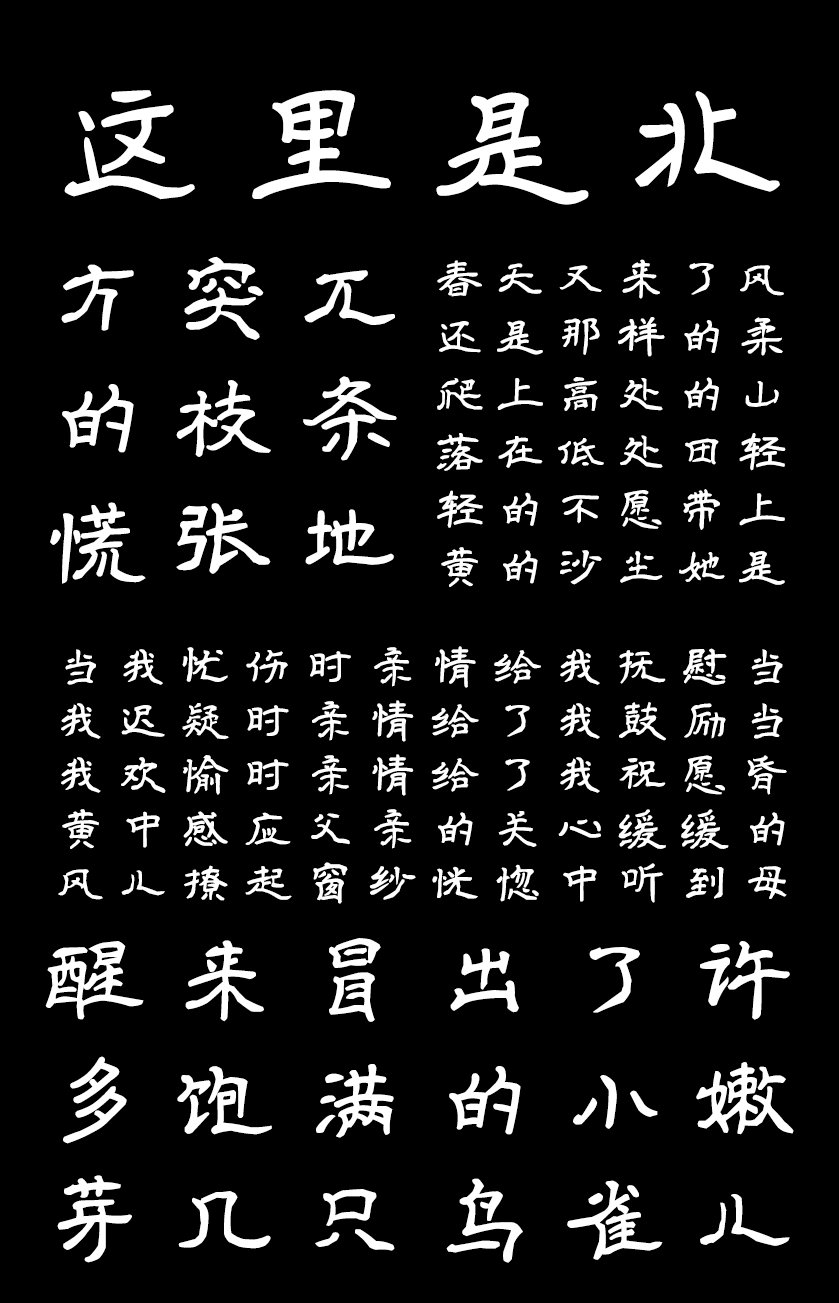 这里是北
方突兀
的枝条
慌张地
春天又来了风
还是那样的柔
爬上高处的山
落在低处田轻
轻的不愿带上
黄的沙尘她是
当我忧伤时亲情给我抚慰当
我迟疑时亲情给了我鼓励当
我欢愉时亲情给了我祝愿昏
黄中感应父亲的关心缓缓的
风儿撩起窗纱恍惚中听到母
醒来冒出了许
多饱满的小嫩
芽几只鸟雀儿